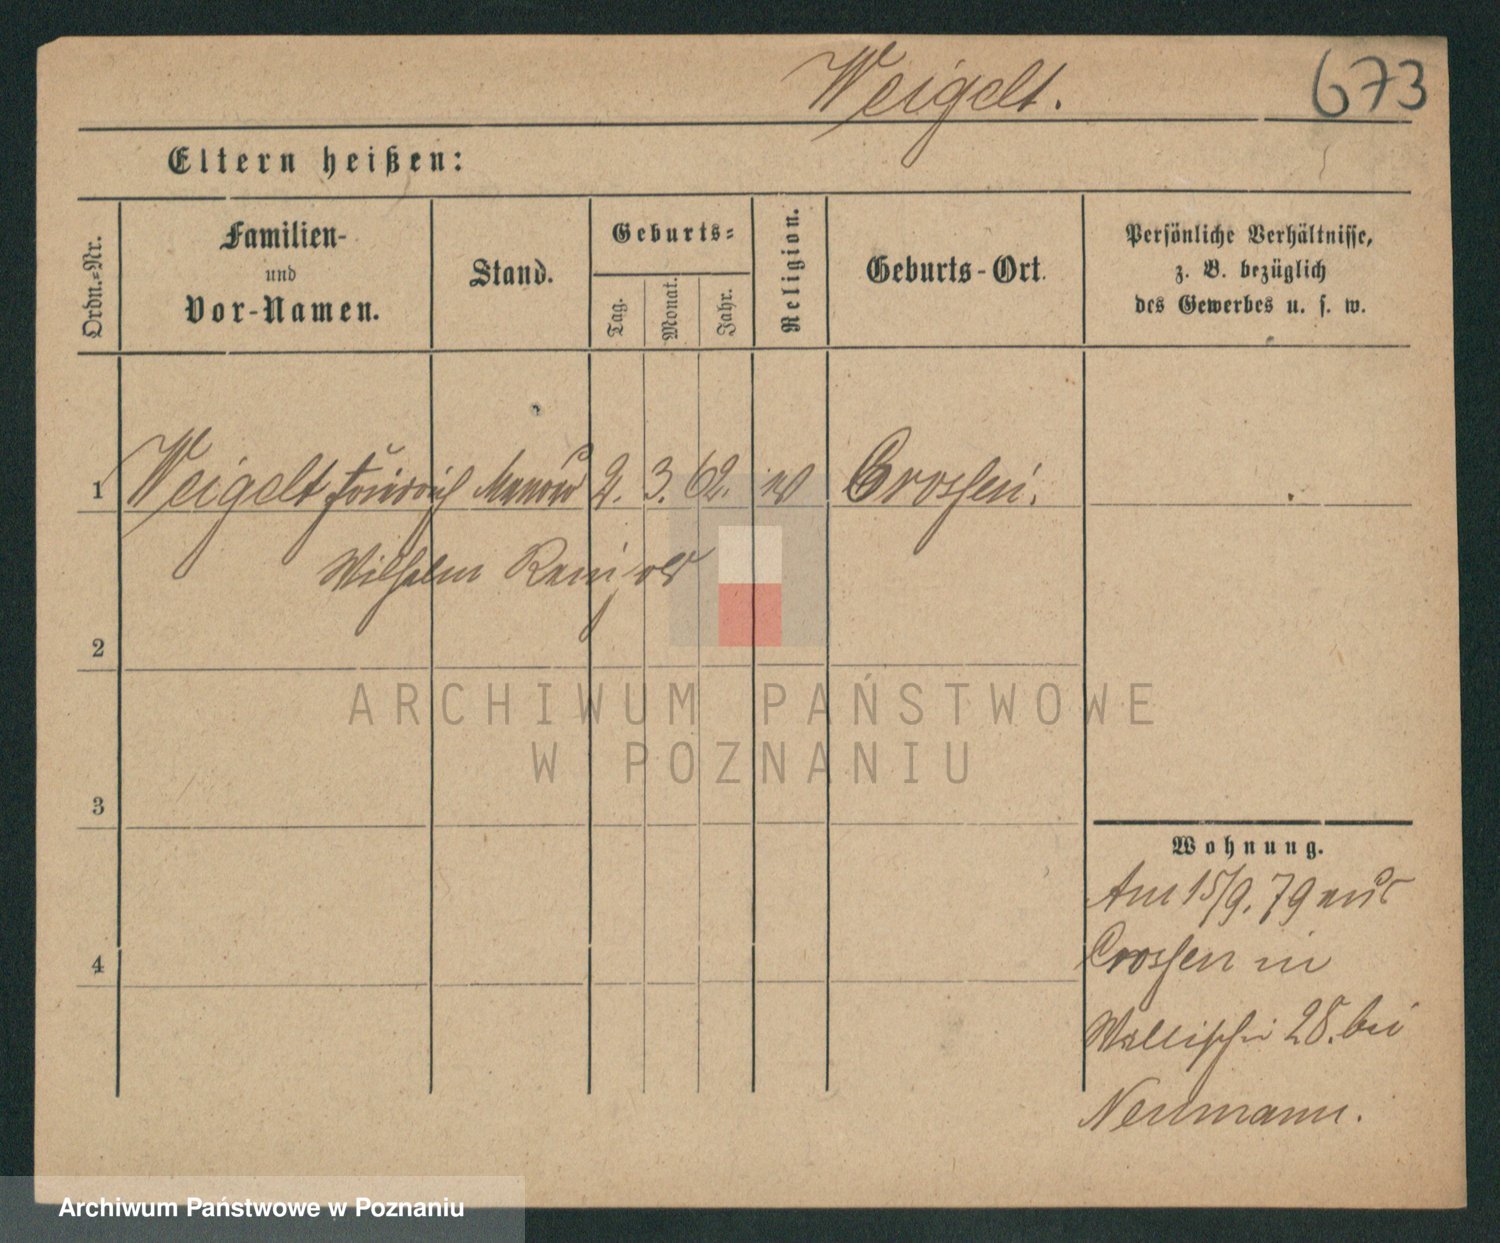 Weigelt.
673
Eltern heißen:
Ordn.-Nr.
Familien-
und
Vor-Namen.
Stand.
Geburts-
Tag.
Monat.
Jahr.
Religion.
Geburts-Ort.
Persönliche Verhältnisse,
z. B. bezüglich
des Gewerbes u. s. w.
1 Weigelt Friedrich 2. 3. 62. Crossen.
Wilhelm
2
3
4
Wohnung.
Am 15/9. 79 aus
Crossen in
Wallischei 28. bei
Neumann.
ARCHIWUM PAŃSTWOWE
W POZNANIU
Archiwum Państwowe w Poznaniu